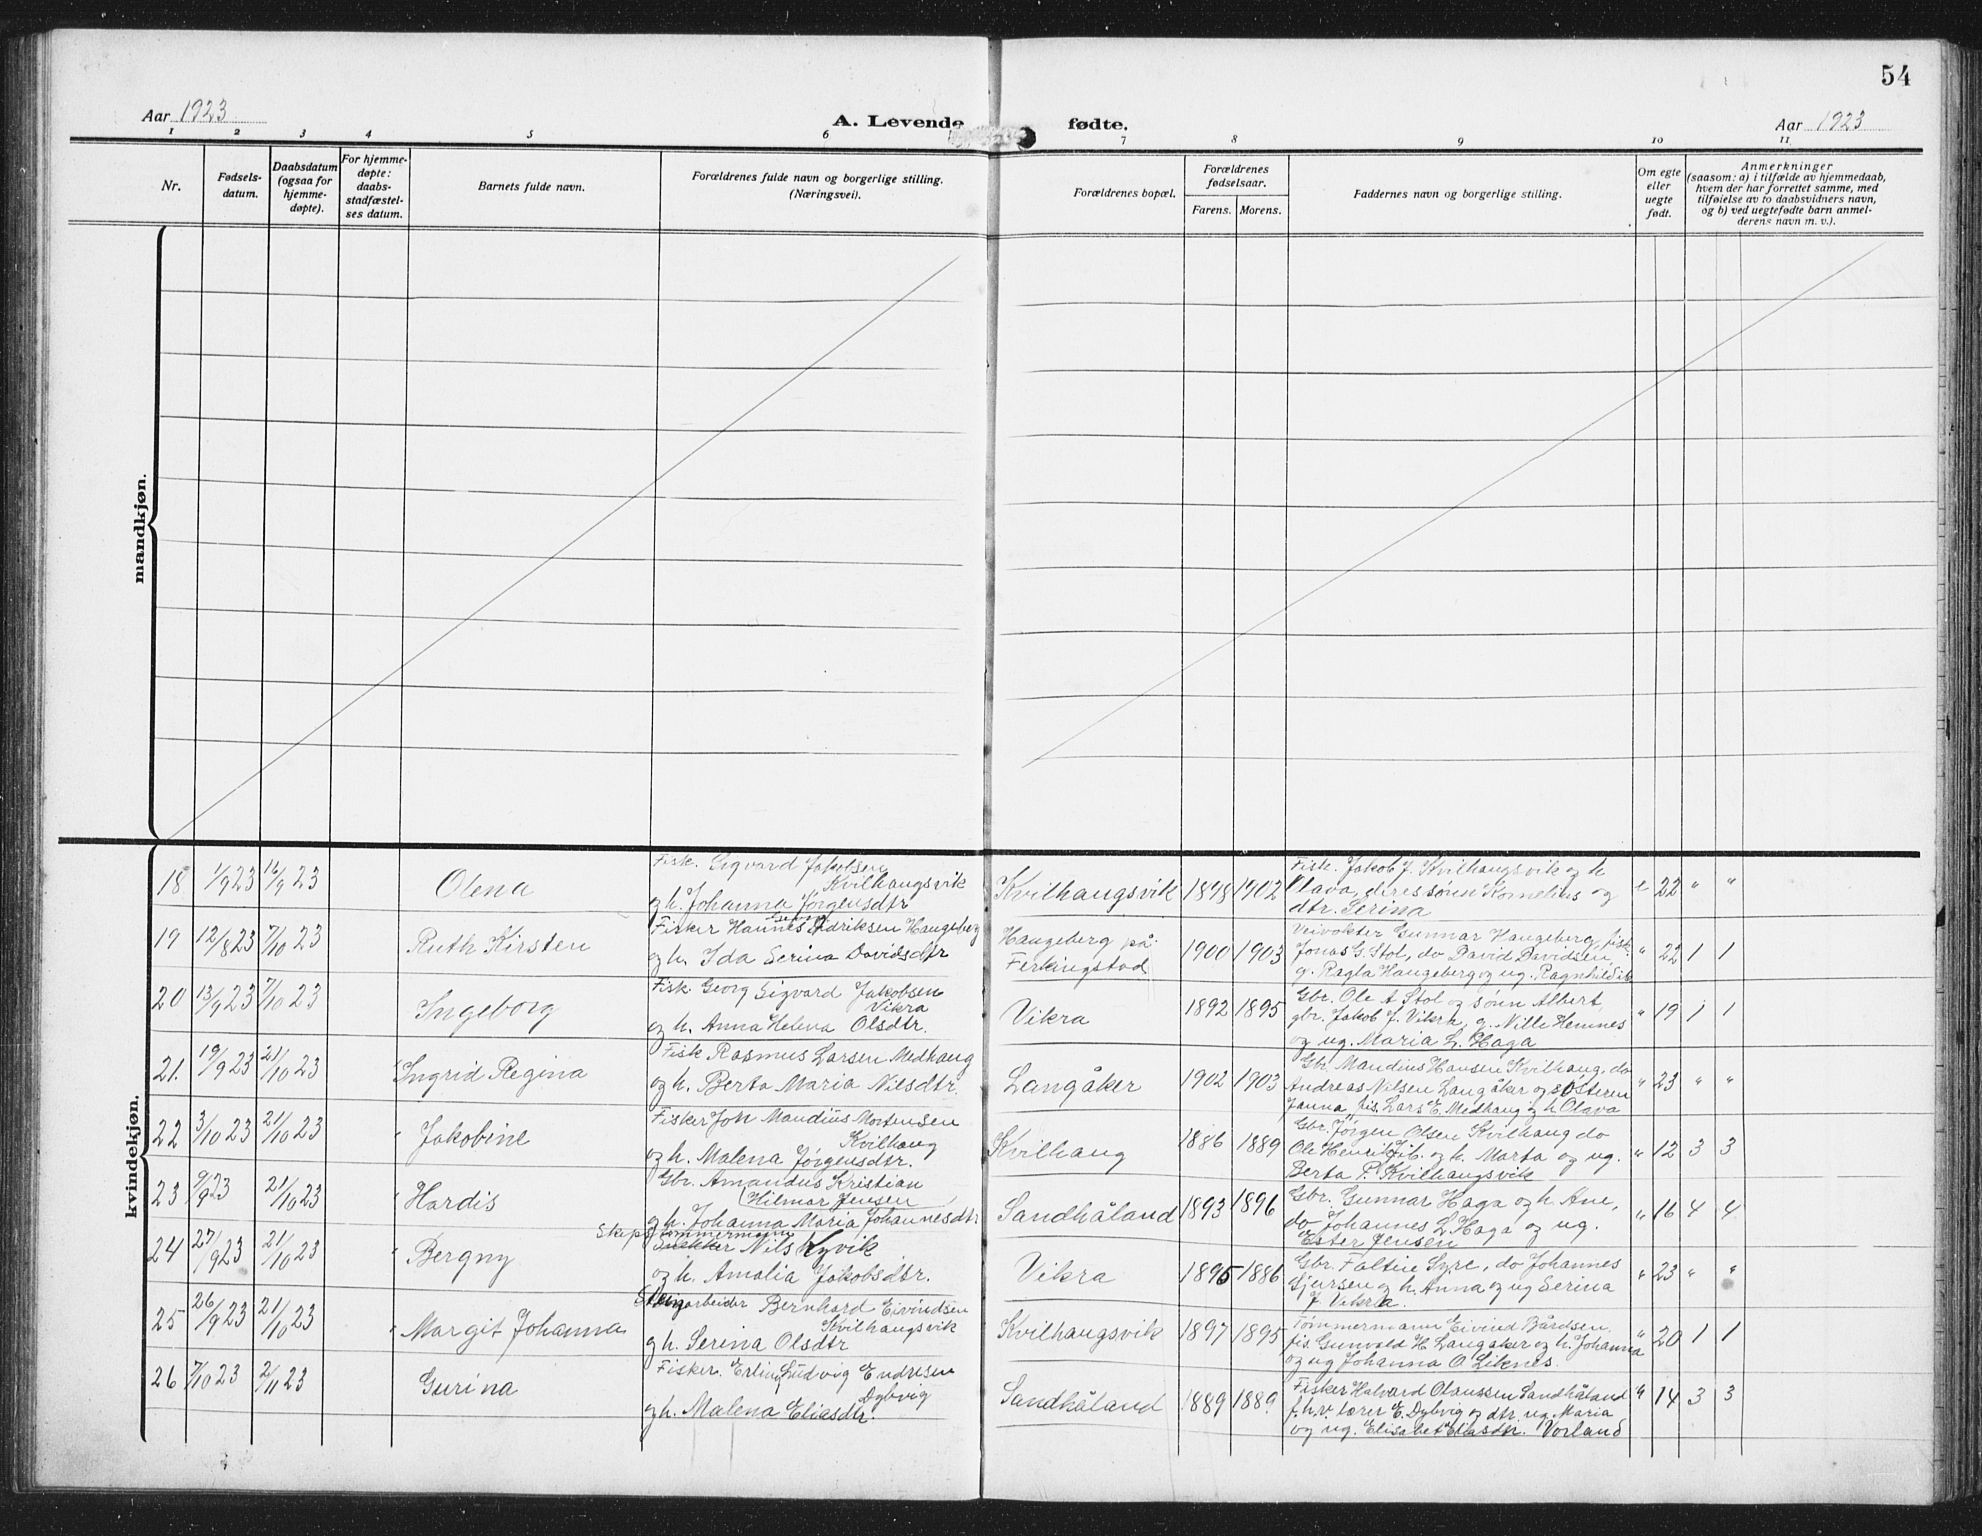 54
Aar 1923
A. Levende fødte.
Aar 1923
1 2 3 4 5 6 7 8 9 10 11
Nr.
Fødsels-
datum.
Daabsdatum
(ogsaa for
hjemme-
døpte).
For hjemme-
døpte:
daabs-
stadfæstel-
ses datum.
Barnets fulde navn.
Forældrenes fulde navn og borgerlige stilling.
(Næringsvei).
Forældrenes bopæl.
Forældrenes
fødselsaar.
Farens. Morens.
Faddernes navn og borgerlige stilling.
Om egte
eller
uegte
født.
Anmerkninger
(saasom: a) i tilfælde av hjemmedaab,
hvem der har forrettet samme, med
tilføielse av to daabsvidners navn,
og b) ved uegtefødte barn anmel-
derens navn m. v.).
mandkjøn.
kvindekjøn.
18 1/9 23 16/9 23 Olena
Fisk. Sigvard Jakobsen
Kvilhaugsvik
og h. Johanna Jørgensdtr
Kvilhaugsvik 1898 1902
Fisk. Jakob J. Kvilhaugsvik og h
Olava, deres sønn Kornelius og
dtr. Serina
e 22 " "
19 12/8 23 7/10 23 Ruth Kirsten
Fisker Hannes Edriksen Haugeberg
og h. Ida Serina Davidsdtr
Haugeberg på
Ferkingstad
1900 1903
Veivokter Gunnar Haugeberg, fisk.
Jonas G. Stol, do David Davidsen,
g. Ragla Haugeberg og ug. Ragnhild ib
" 22 1 1
20 13/9 23 7/10 23 Ingeborg
Fisk Georg Sigvard Jakobsen
Vikra
og h. Anna Helena Olsdtr.
Vikra 1892 1895
Gbr. Ole A Stol og sønn Albert
gbr. Jakob J. Vikra, g. Nille Hemnes
og ug. Maria L. Haga
" 19 1 1
21. 19/9 23 21/10 23 Ingrid Regina
Fisk Rasmus Larsen Medhaug
og h. Berta Maria Nilsdtr.
Langåker 1902 1903
Gb. Mandius Hansen Kvilhaug, do
Andreas Nilsen Langåker og søsteren
Janna, fis. Lars E. Medhaug og h. Olava
" 23 " "
22 3/10 23 21/10 23 Jakobine
Fisker Joh Mandius Mortensen
Kvilhaug
og h. Malena Jørgensdtr.
Kvilhaug 1886 1889
Gbr. Jørgen Olsen Kvilhaug do
Ole Henrik J ib. og h. Marta og ug.
Berta P. Kvilhaugsvik
" 12 3 3
23 9/9 23 21/10 23 Hardis
Gbr. Amandus Kristian
Hilmar Jensen
og h. Johanna Maria Johannesdtr
Sandhåland 1893 1896
Gbr. Gunnar Haga og h. Ane,
do Johannes L Haga og ug.
Ester Jensen
" 16 4 4
24 27/9 23 21/10 23 Bergny
Skipstømmermann
Snekker Nils Kyvik
og h. Amalia Jakobsdtr.
Vikra 1895 1886
Gbr. Faltin Syre, do Johannes
Sjursen og h. Anna og ug Serina
J. Vikra.
" 23 " "
25 26/9 23 21/10 23 Margit Johanna
Bernhard Eivindsen
Kvilhaugsvik
og h. Serina Olsdtr
Kvilhaugsvik 1897 1895
Tømmermann Eivind Bårdsen,
fis. Gunvald H. Langåker og h. Johanna
og ug Johanna O. Liknes.
" 20 1 1
26 7/10 23 2/11 23 Gurina
Fisker. Erling Ludvig Endresen
Dybvig
og h. Malena Eliasdtr.
Sandhåland 1889 1889
Fisker Halvard Olaussen Sandhåland
f.h.v. lærer E. Dybvig og dtr. ug. Maria
og ug. Elisabet Eliasdtr. Vorland
" 14 3 3